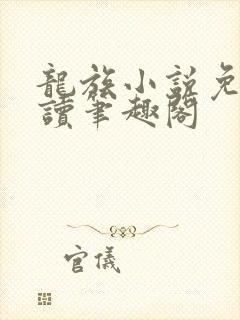 龍族小說免
讀筆趣閣
官儀